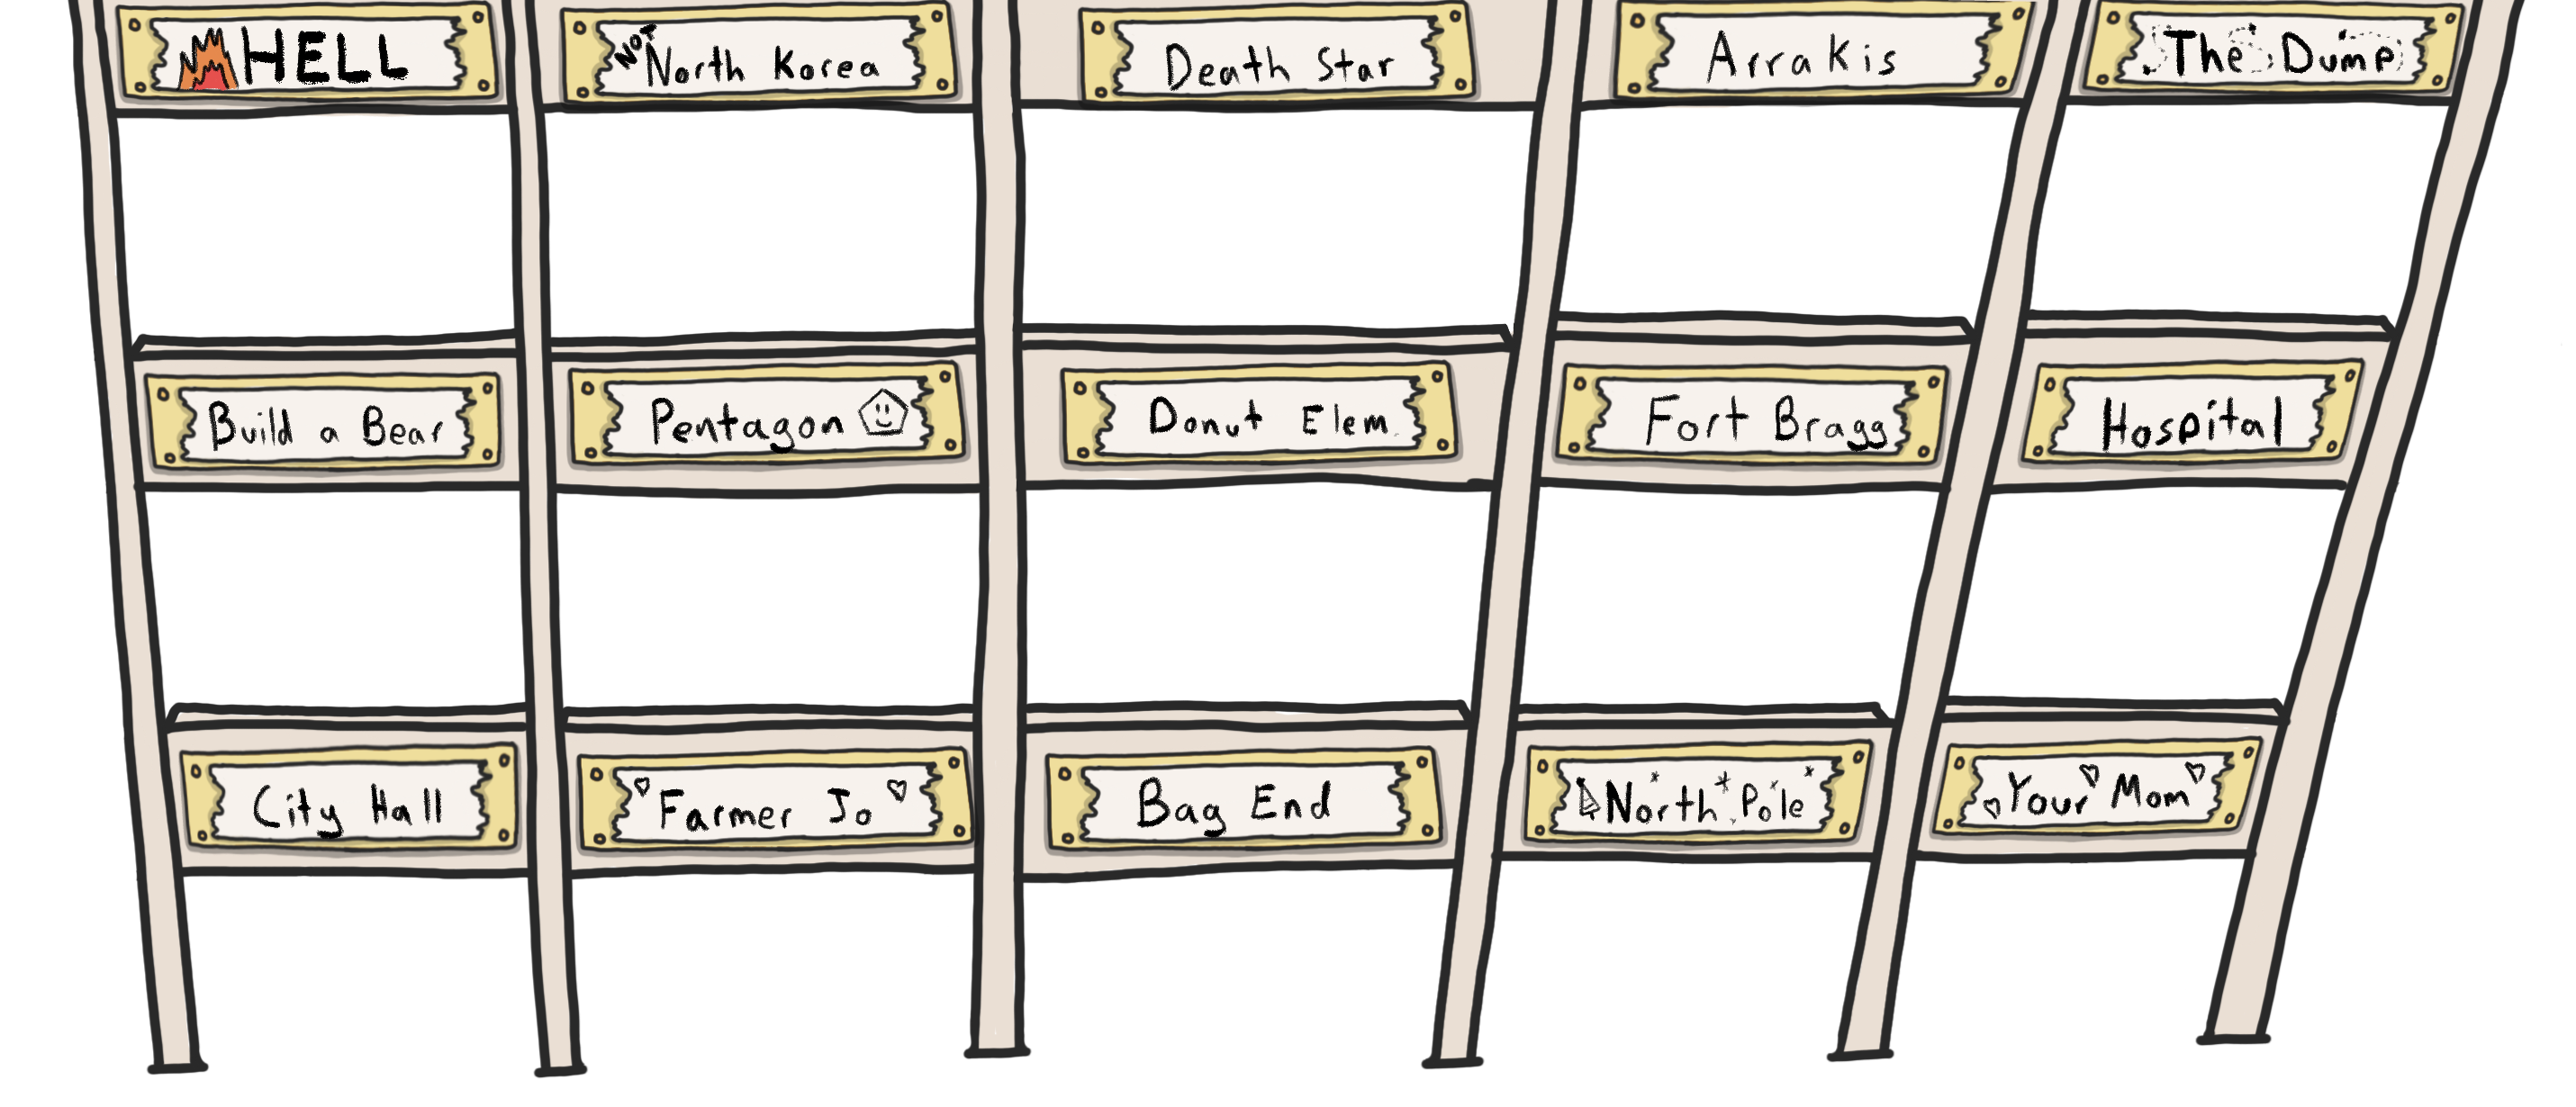 HELL
NOT North Korea
Death Star
Arrakis
The Dump
Build a Bear
Pentagon
Donut Elem.
Fort Bragg
Hospital
City Hall
Farmer Jo
Bag End
North Pole
Your Mom